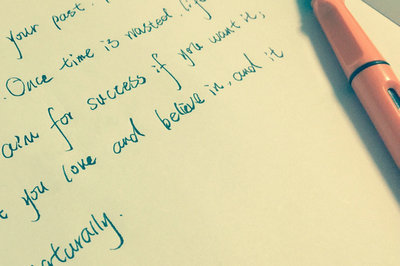 your past.
. Once time is wasted, life
aim for success if you want it;
you love and believe in, and it
naturally.